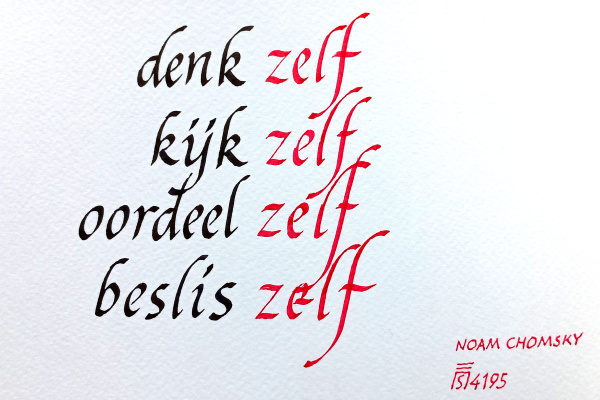 denk zelf
kijk zelf
oordeel zelf
beslis zelf
NOAM CHOMSKY
4195